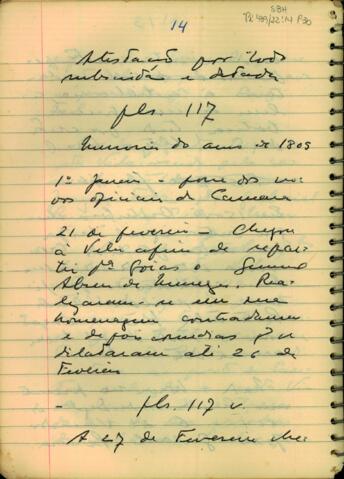 SBH
14
Atestado por todos
subscrito e datado
fls. 117
Memoria do ano de 1809
1º Janeiro - posse dos no-
vos oficiais da Camara
21 de fevereiro - Chegou
à Vila afim de repar-
tir pª Goias o
homenagem contradanças
e depois comedias q se
dilataram até 26 de
Fevereiro
- fls. 117 v.
A 27 de Fevereiro